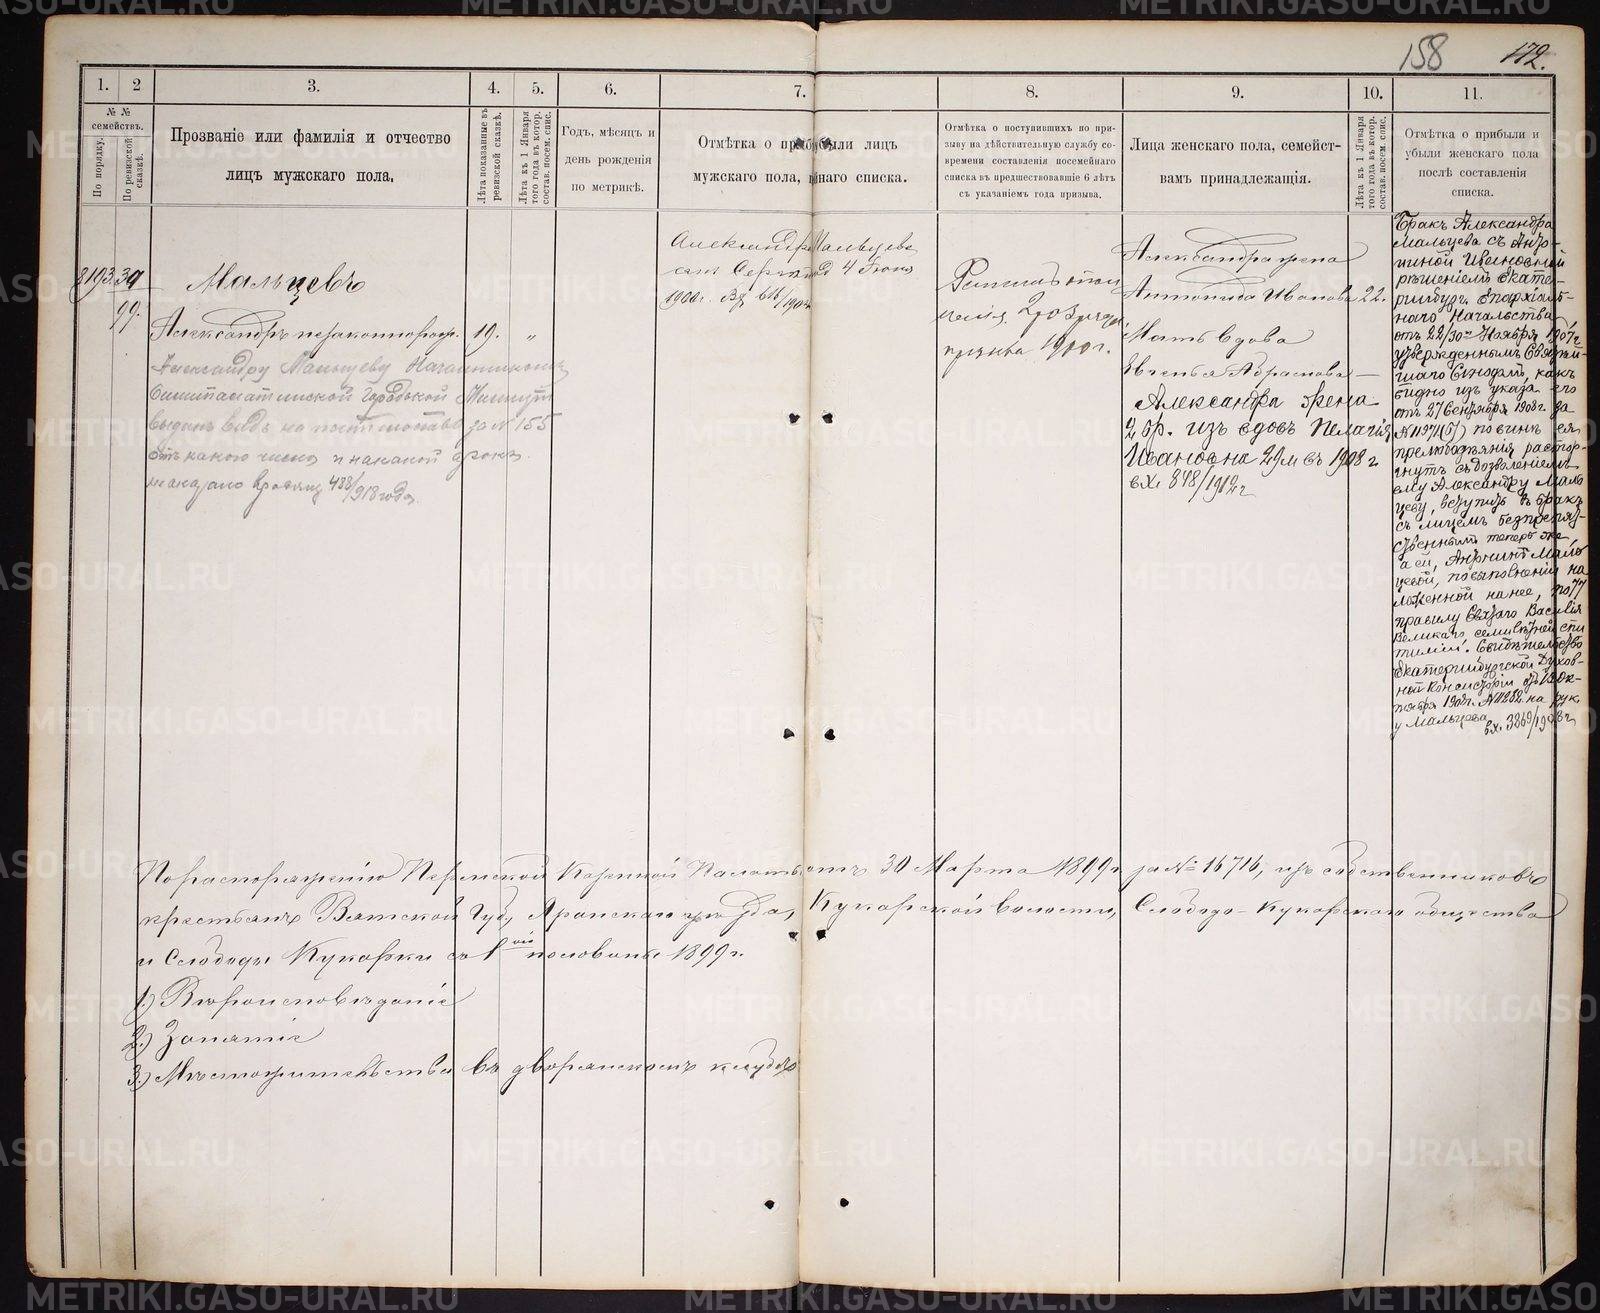 158 172.
1. 2 3. 4. 5. 6. 7. 8. 9. 10. 11.
№ №
семействъ.
По порядку.
По ревизской
сказкѣ.
Прозваніе или фамилія и отчество
лицъ мужскаго пола.
Лѣта показанные въ
ревизской сказкѣ.
Лѣта къ 1 Января
того года въ котор.
состав. посем. спис.
Годъ, мѣсяцъ и
день рожденія
по метрикѣ.
Отмѣтка о прибыли лицъ
мужскаго пола, наго списка.
Отмѣтка о поступившихъ по при-
зыву на дѣйствительную службу со-
времени составленія посемейнаго
списка въ предшествовавшіе 6 лѣтъ
съ указаніемъ года призыва.
Лица женскаго пола, семейст-
вамъ принадлежащія.
Лѣта къ 1 Января
того года въ котор.
состав. посем. спис.
Отмѣтка о прибыли и
убыли женскаго пола
послѣ составленія
списка.
8193. 39
99.
Мальцевъ
Александръ незаконнорож. 19. "
Александру Мальцеву Начальникомъ
Городской Милиціи
выданъ видъ на жительство за № 155
отъ какого числа и на какой срокъ
не указано 488/918 года
Александръ Мальцевъ
4 Іюня
1900 г. Вх.
Ратникъ опол
ченія 2го разряда
призыва 1900 г.
Александра жена
Антонида Иванова 22.
Мать вдова
Евгенья Абрамова
Александра жена
2 бр. изъ вдовъ Пелагія
Ивановна 29 л въ 1908 г
вх. 848/1912 г
Бракъ Александра
Мальцева съ Анф-
иной Ивановной
рѣшеніемъ Екате-
ринбург. Епархіаль-
наго Начальства
отъ 22/30 Ноября 1907 г
утвержденнымъ Святѣй-
шаго Синодомъ, какъ
видно изъ указа его
отъ 27 Сентября 1908 г. за
№ 11971 по винѣ ея
прелюбодѣянія растор-
гнутъ съ дозволеніемъ
ему Александру Маль
цеву, вступить въ бракъ
съ лицемъ безпрепят-
ственнымъ теперь же,
а ей, Анфинѣ Маль
цевой, по выполненіи на
ложенной на нее, по 77
правилу Святаго Василія
Великаго, семилѣтней епи
тиміи. Свидѣтельство
Екатеринбургской Духов-
ной Консисторіи отъ Ок-
тября 1908 г. № 11282 на рук
у Мальцева
вх. 3869/1908 г.
По распоряженію Пермской Казенной Палаты отъ 30 Марта 1899 г. за № 16716, изъ собственниковъ
крестьянъ Вятской Губ, Яранскаго уѣзда, Кукарской волости, Слободо-Кукарскаго общества
и Слободы Кукарки со 1ой половины 1899 г.
1.) Вѣроисповѣданіе
2.) Занятіе
3.) Мѣстожительство въ дворянскомъ клубѣ